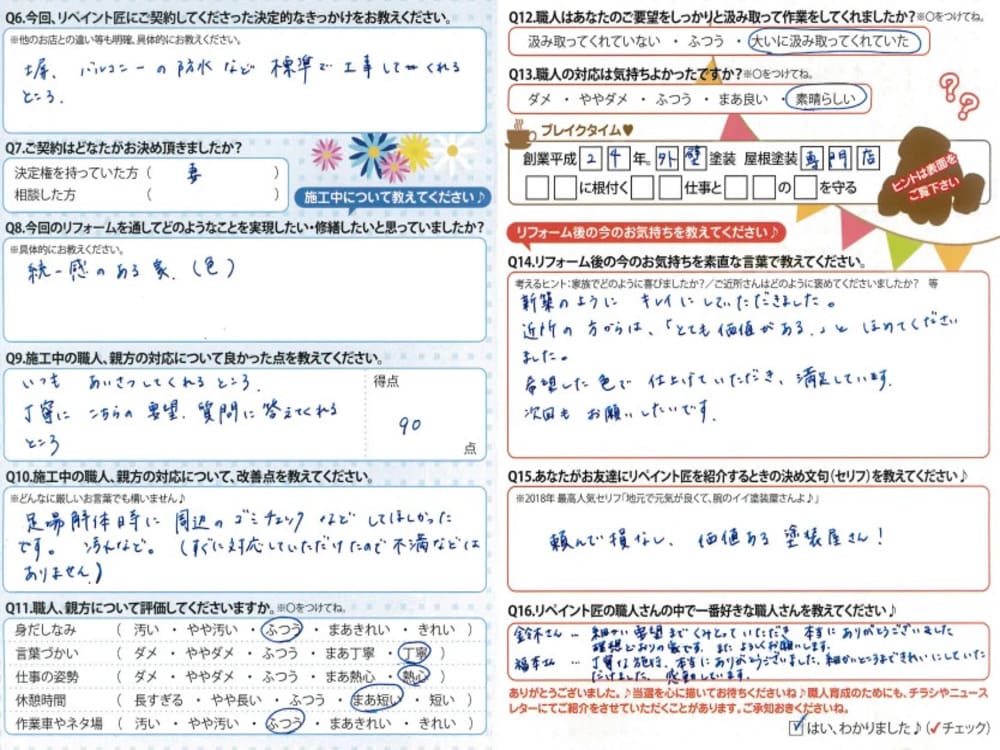 Q6.今回、リペイント匠にご契約してくださった決定的なきっかけをお教えください。
※他のお店との違い等も明確、具体的にお教えください。
塀、バルコニーの防水など 標準で工事してくれる
ところ.
Q7.ご契約はどなたがお決め頂きましたか?
決定権を持っていた方( 妻 )
相談した方 ( )
施工中について教えてください♪
Q8.今回のリフォームを通してどのようなことを実現したい・修繕したいと思っていましたか?
※具体的にお教えください。
統一感のある家.(色)
Q9.施工中の職人、親方の対応について良かった点を教えてください。
いつも あいさつしてくれるところ.
丁寧に こちらの要望.質問に答えてくれる
ところ
得点
90
点
Q10.施工中の職人、親方の対応について、改善点を教えてください。
※どんなに厳しいお言葉でも構いません♪
足場解体時に 周辺のゴミチェックなど してほしかった
です。 汚れなど。(すぐに対応していただけたので不満などは
ありません.)
Q11.職人、親方について評価してくださいますか。※〇をつけてね。
身だしなみ ( 汚い ・ やや汚い ・ ふつう ・ まあきれい ・ きれい )
言葉づかい ( ダメ ・ ややダメ ・ ふつう ・ まあ丁寧 ・ 丁寧 )
仕事の姿勢 ( ダメ ・ ややダメ ・ ふつう ・ まあ熱心 ・ 熱心 )
休憩時間 ( 長すぎる ・ やや長い ・ ふつう ・ まあ短い ・ 短い )
作業車やネタ場 ( 汚い ・ やや汚い ・ ふつう ・ まあきれい ・ きれい )
Q12.職人はあなたのご要望をしっかりと汲み取って作業をしてくれましたか?※〇をつけてね。
汲み取ってくれていない ・ ふつう ・ 大いに汲み取ってくれていた
Q13.職人の対応は気持ちよかったですか?※〇をつけてね。
ダメ ・ ややダメ ・ ふつう ・ まあ良い ・ 素晴らしい
??
ブレイクタイム♥
創業平成24年。外壁塗装 屋根塗装専門店
□□に根付く□□仕事と□□の□を守る
ヒントは表面を
ご覧下さい
リフォーム後の今のお気持ちを教えてください♪
Q14.リフォーム後の今のお気持ちを素直な言葉で教えてください。
考えるヒント:家族でどのように喜びましたか?/ご近所さんはどのように褒めてくださいましたか? 等
新築のように キレイにしていただきました。
近所の方からは、「とても価値がある.」と ほめてください
ました。
希望した色で 仕上げていただき、満足しています.
次回も お願いしたいです.
Q15.あなたがお友達にリペイント匠を紹介するときの決め文句(セリフ)を教えてください♪
※2018年 最高人気セリフ「地元で元気が良くて、腕のイイ塗装屋さんよ♪」
頼んで損なし、 価値ある 塗装屋さん!
Q16.リペイント匠の職人さんの中で一番好きな職人さんを教えてください♪
鈴木さん … 細かい要望まで くみとっていただき 本当に ありがとうございました
理想どおりの家です. また よろしくお願いします.
福本さん … 丁寧な施行、本当にありがとうございました.細かいところまできれいにしていた
だけました. 感動しています.
ありがとうございました。♪当選を心に描いてお待ちくださいね♪職人育成のためにも、チラシやニュース
レターにてご紹介をさせていただくことがあります。ご承知おきくださいね。
☑はい、わかりました♪(✓チェック)